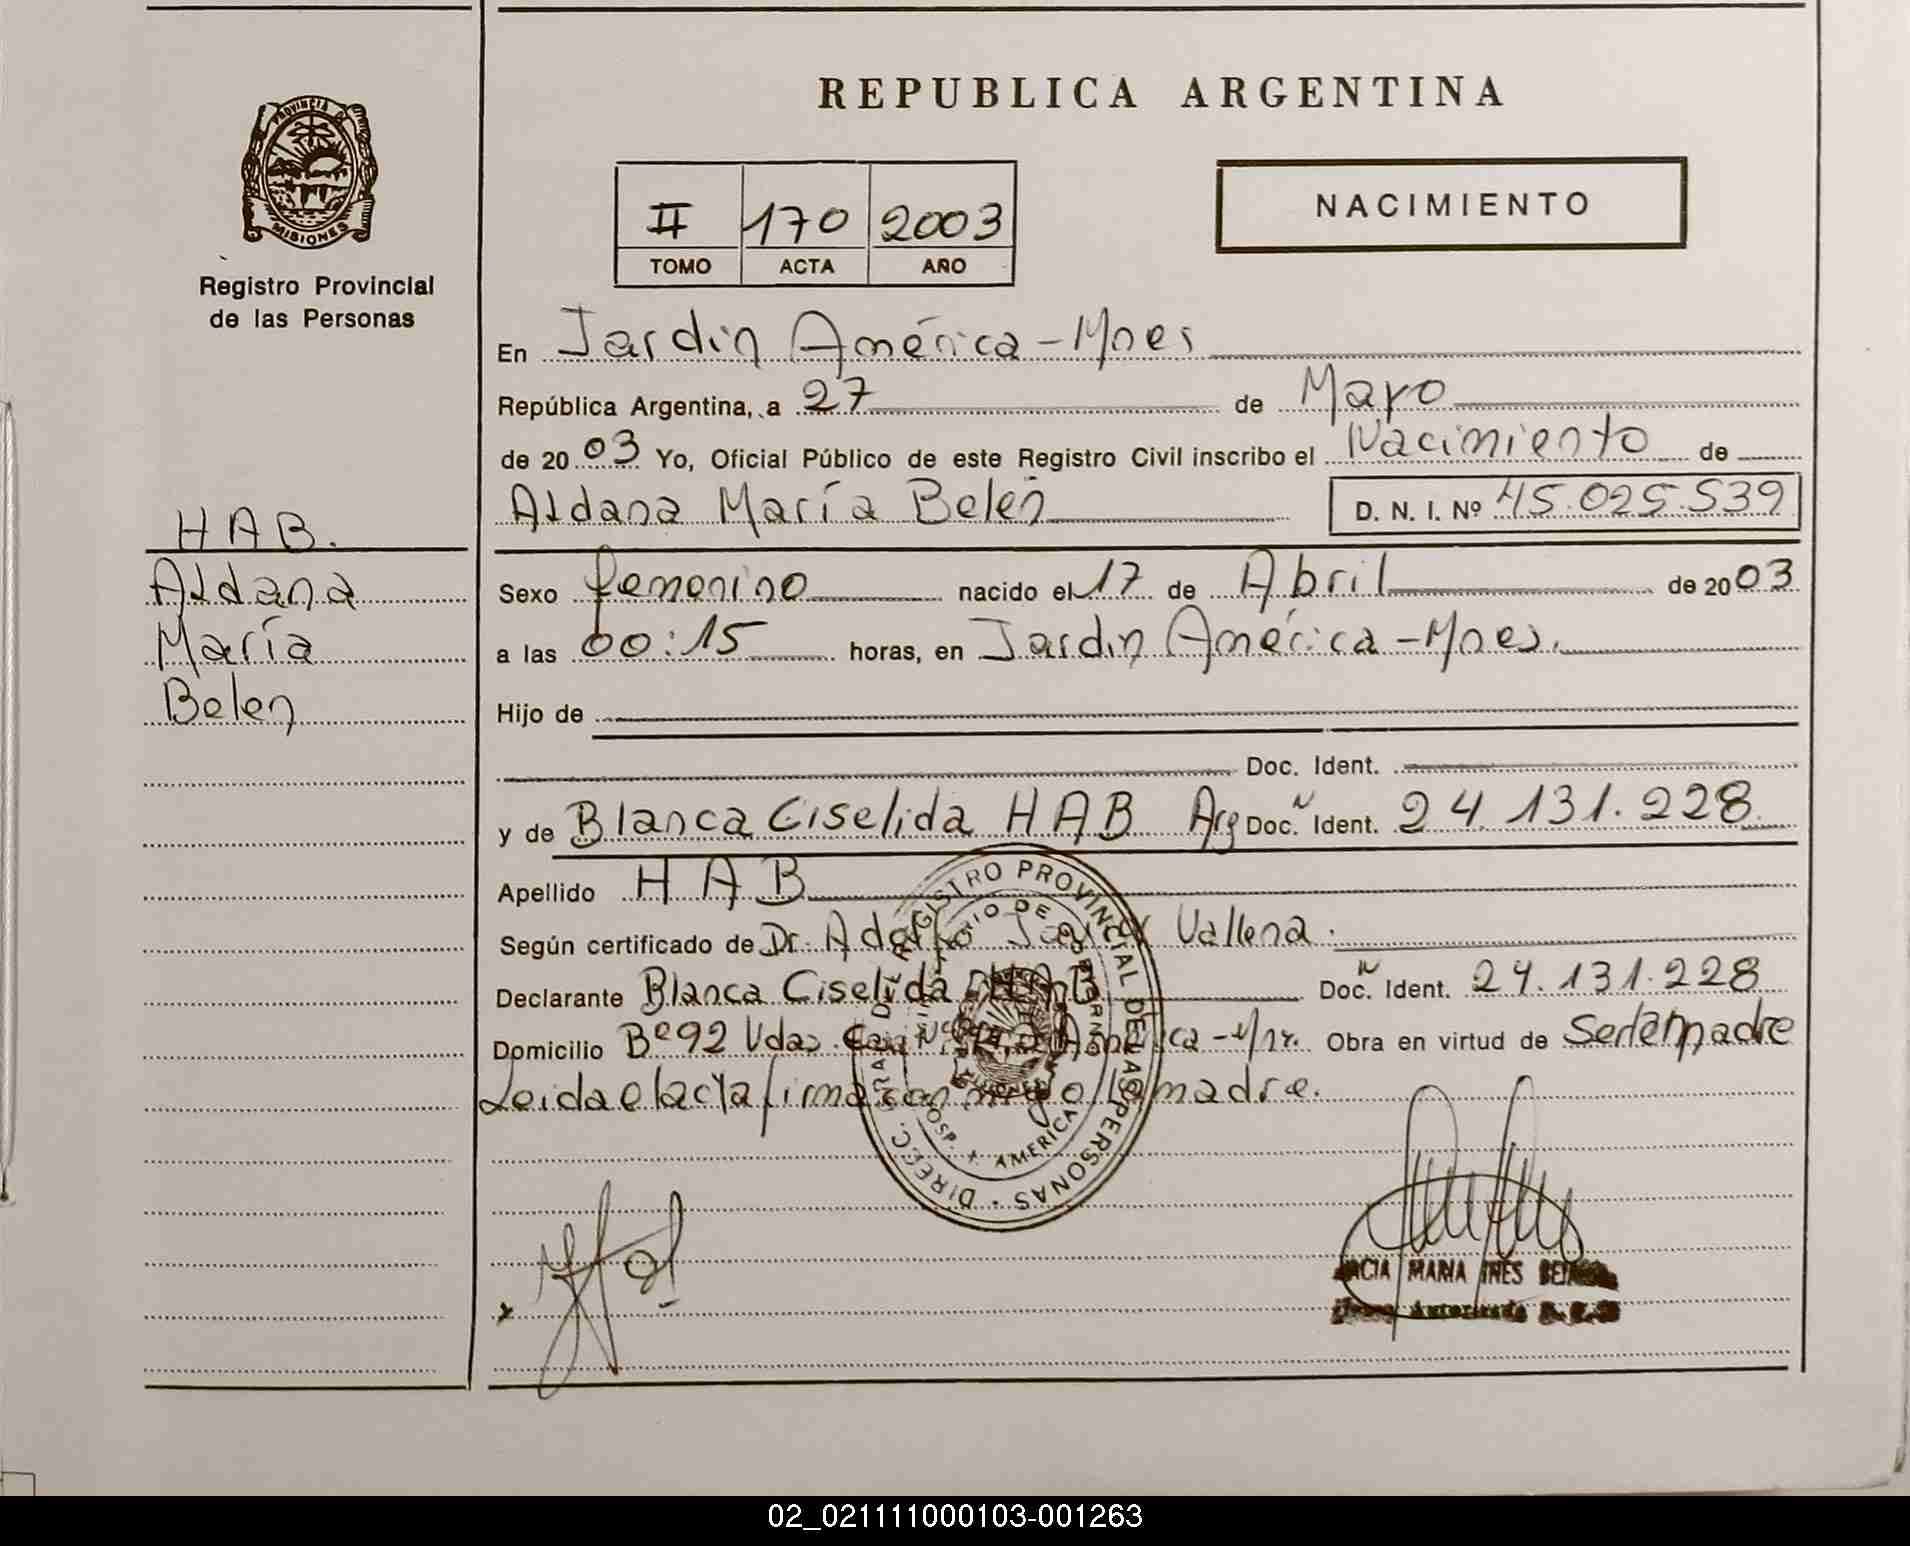 REPUBLICA ARGENTINA
PROVINCIA DE MISIONES
Registro Provincial
de las Personas
II 170 2003
TOMO ACTA AÑO
NACIMIENTO
En Jardin América - Mnes
República Argentina, a 27 de Mayo
de 2003 Yo, Oficial Público de este Registro Civil inscribo el Nacimiento de
Aldana María Belén D. N. I. Nº 45.025.539
HAB.
Aldana
María
Belen
Sexo femenino nacido el 17 de Abril de 2003
a las 00:15 horas, en Jardin América - Mnes.
Hijo de
Doc. Ident.
y de Blanca Ciselida HAB Arg Doc. Ident. 24.131.228
Apellido HAB
Según certificado de Dr. Adolfo Vallena.
Declarante Blanca Ciselida HAB Doc. Ident. 24.131.228
Domicilio Bº 92 Vdas. América - Obra en virtud de Ser la madre
Leida el acta firma conmigo la madre.
DIRECC. GRAL. DE REGISTRO PROVINCIAL DE LAS PERSONAS
MINISTERIO DE GOBIERNO
HOSP. J. AMERICA
MARIA INES
Autorizada
02_021111000103-001263